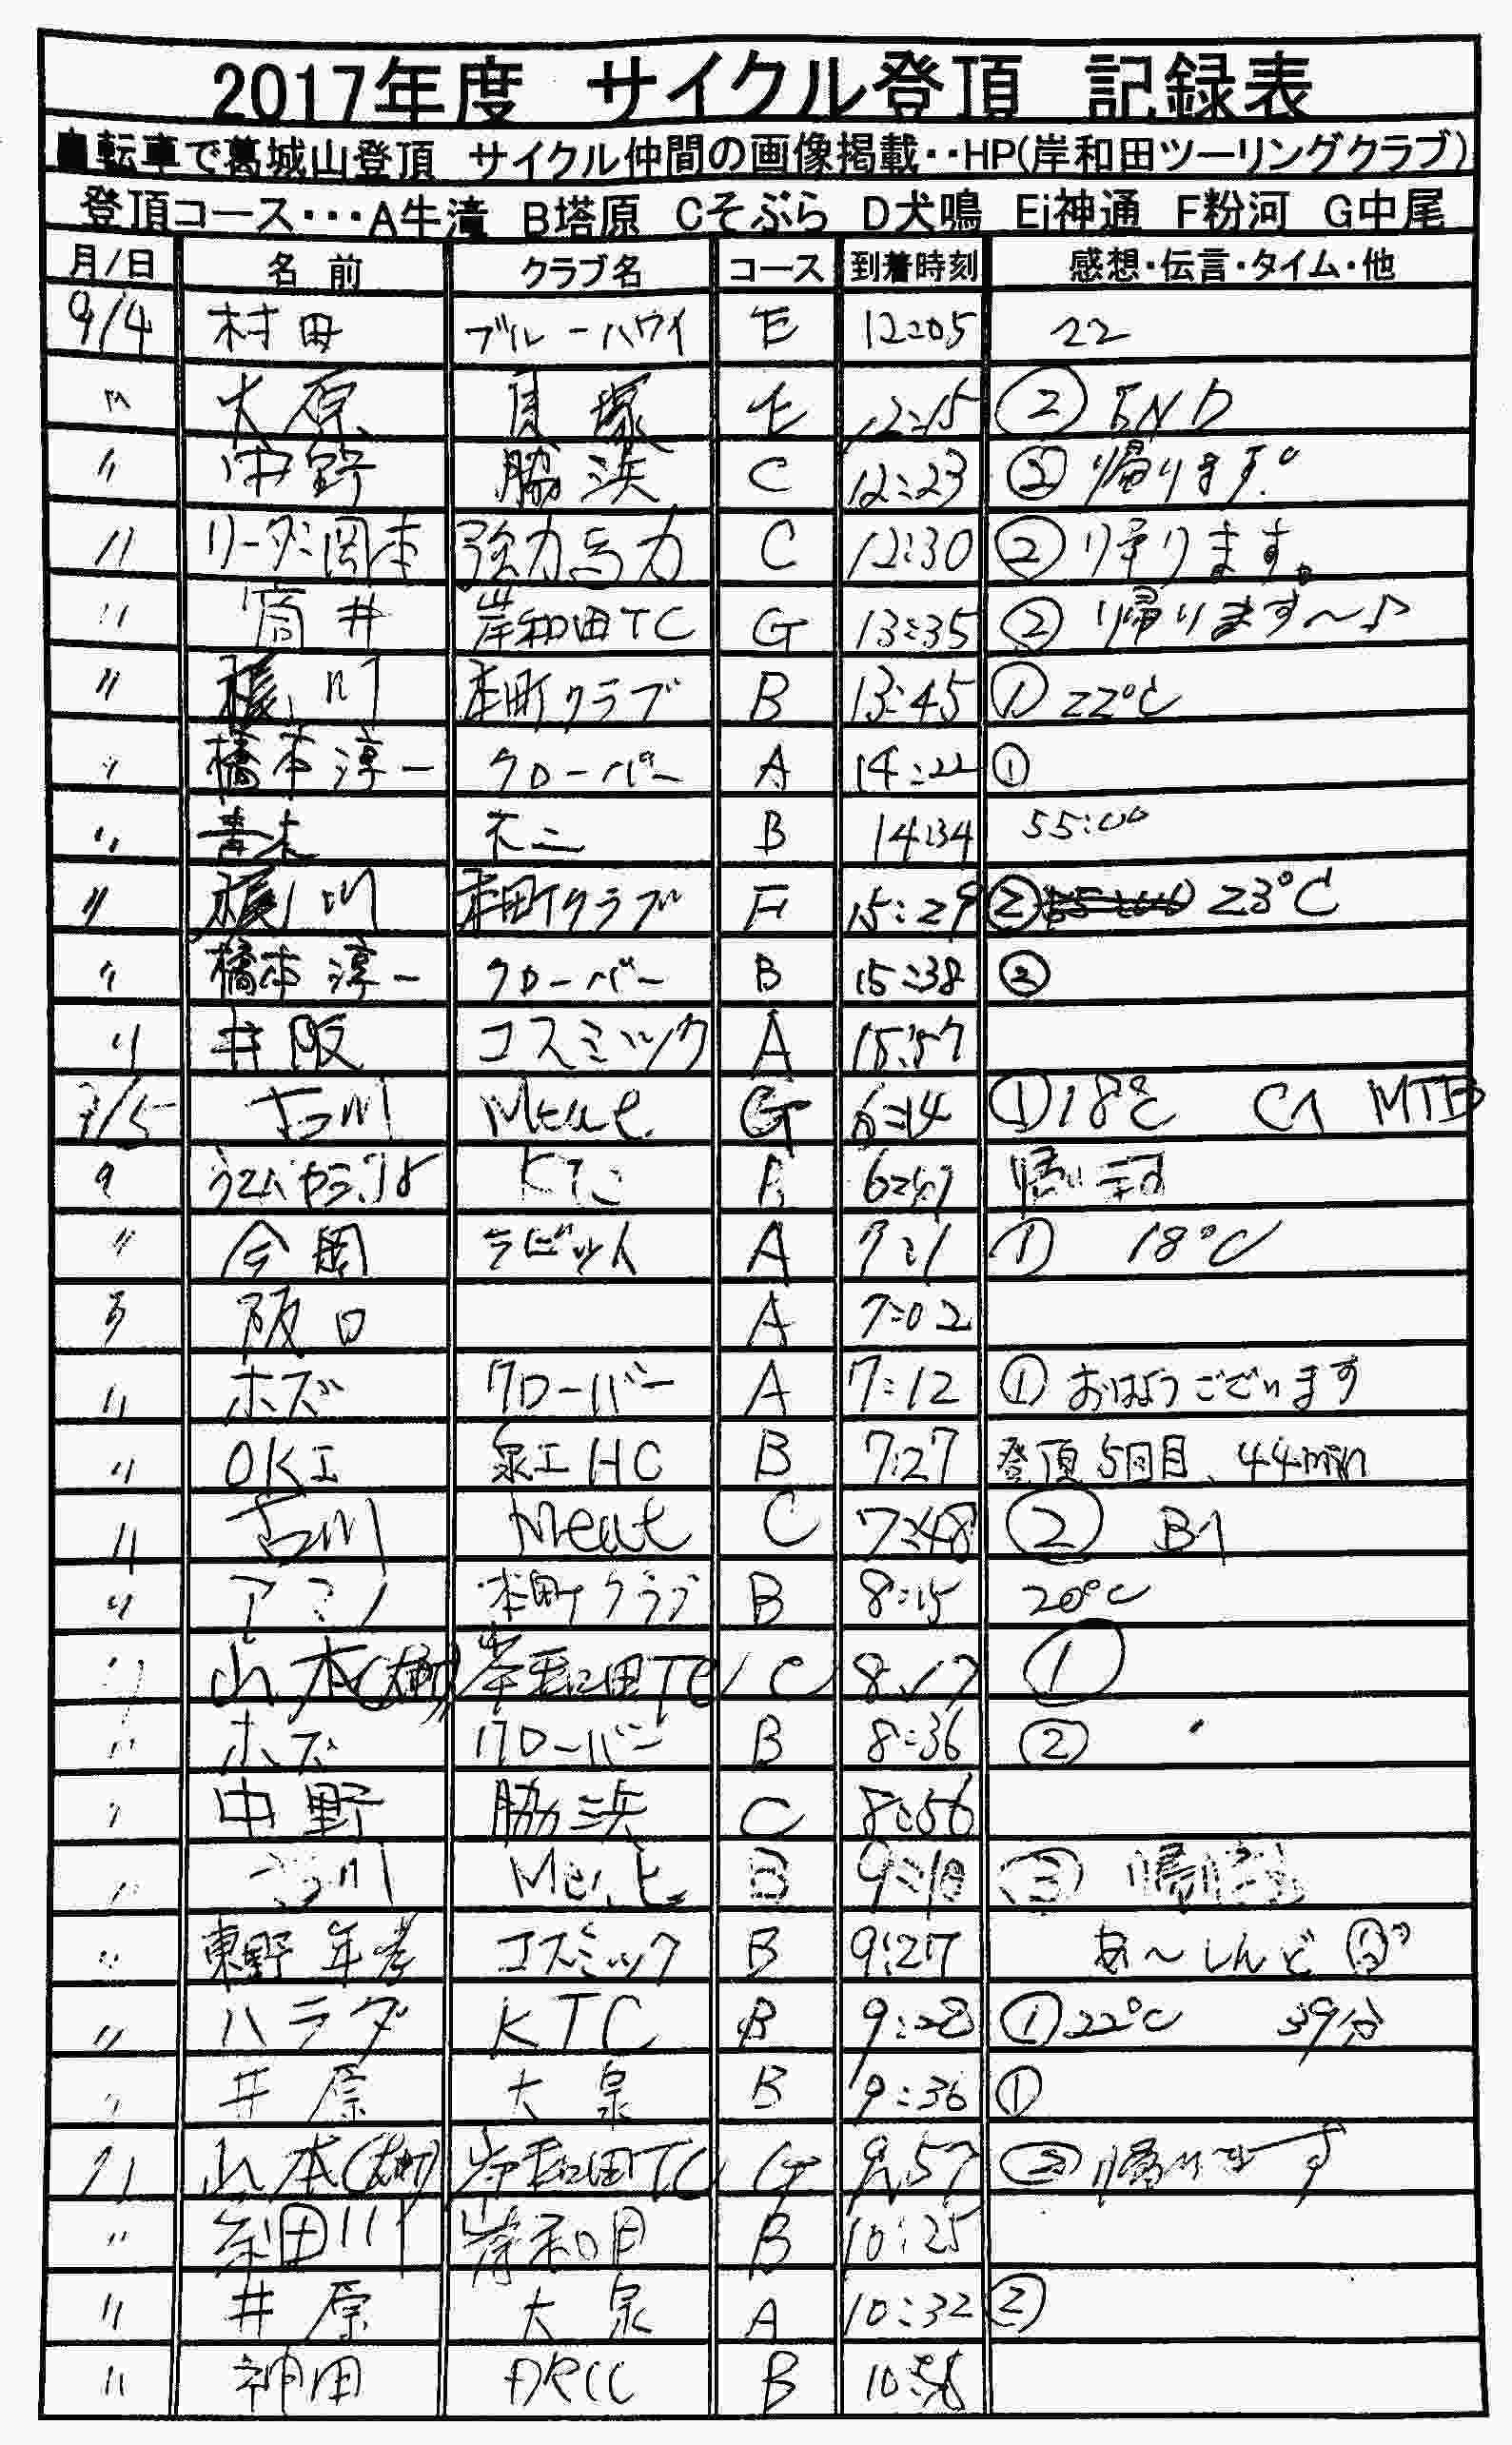 2017年度 サイクル登頂 記録表
自転車で葛城山登頂 サイクル仲間の画像掲載‥HP(岸和田ツーリングクラブ)
登頂コース･･･A牛滝 B塔原 Cそぶら D犬鳴 Ei神通 F粉河 G中尾
月/日 名前 クラブ名 コース 到着時刻 感想・伝言・タイム・他
9/4 村田 ブルーハワイ E 12:05 22
〃 大原 貝塚 E 12:15 ② END
〃 中野 脇浜 C 12:23 ② 帰ります。
〃 リーダー岡本 強力馬力 C 12:30 ② 帰ります。
〃 筒井 岸和田TC G 13:35 ② 帰ります〜♪
〃 川 本町クラブ B 13:45 ① 22℃
〃 橋本淳一 クローバー A 14:22 ①
〃 青木 不二 B 14:34 55:00
〃 川 本町クラブ F 15:29 ② 23℃
〃 橋本淳一 クローバー B 15:38 ②
〃 井阪 コスミック A 15:57
/5 古川 Meat G 6:14 ① 18℃ C↑ MTB
A
〃 今岡 ラビット A ① 18℃
〃 阪口 A 7:02
〃 ホズ クローバー A 7:12 ① おはようございます
〃 OKI 泉工HC B 7:27 登頂5回目、44min
〃 古川 Meat C 7:48 ② B↑
〃 アマノ 本町クラブ B 8:15 20℃
〃 山本 岸和田TC C 8:17 ①
〃 ホズ クローバー B 8:36 ②
〃 中野 脇浜 C 8:56
〃 古川 Meat B 9:10 ③
〃 東野年孝 コスミック B 9:27 あ〜しんど
〃 ハラダ KTC B 9:28 ① 22℃ 39分
〃 井原 大泉 B 9:36 ①
〃 山本 岸和田TC G 9:57 ② 帰ります
〃 田川 岸和田 B 10:25
〃 井原 大泉 A 10:32 ②
〃 神田 B